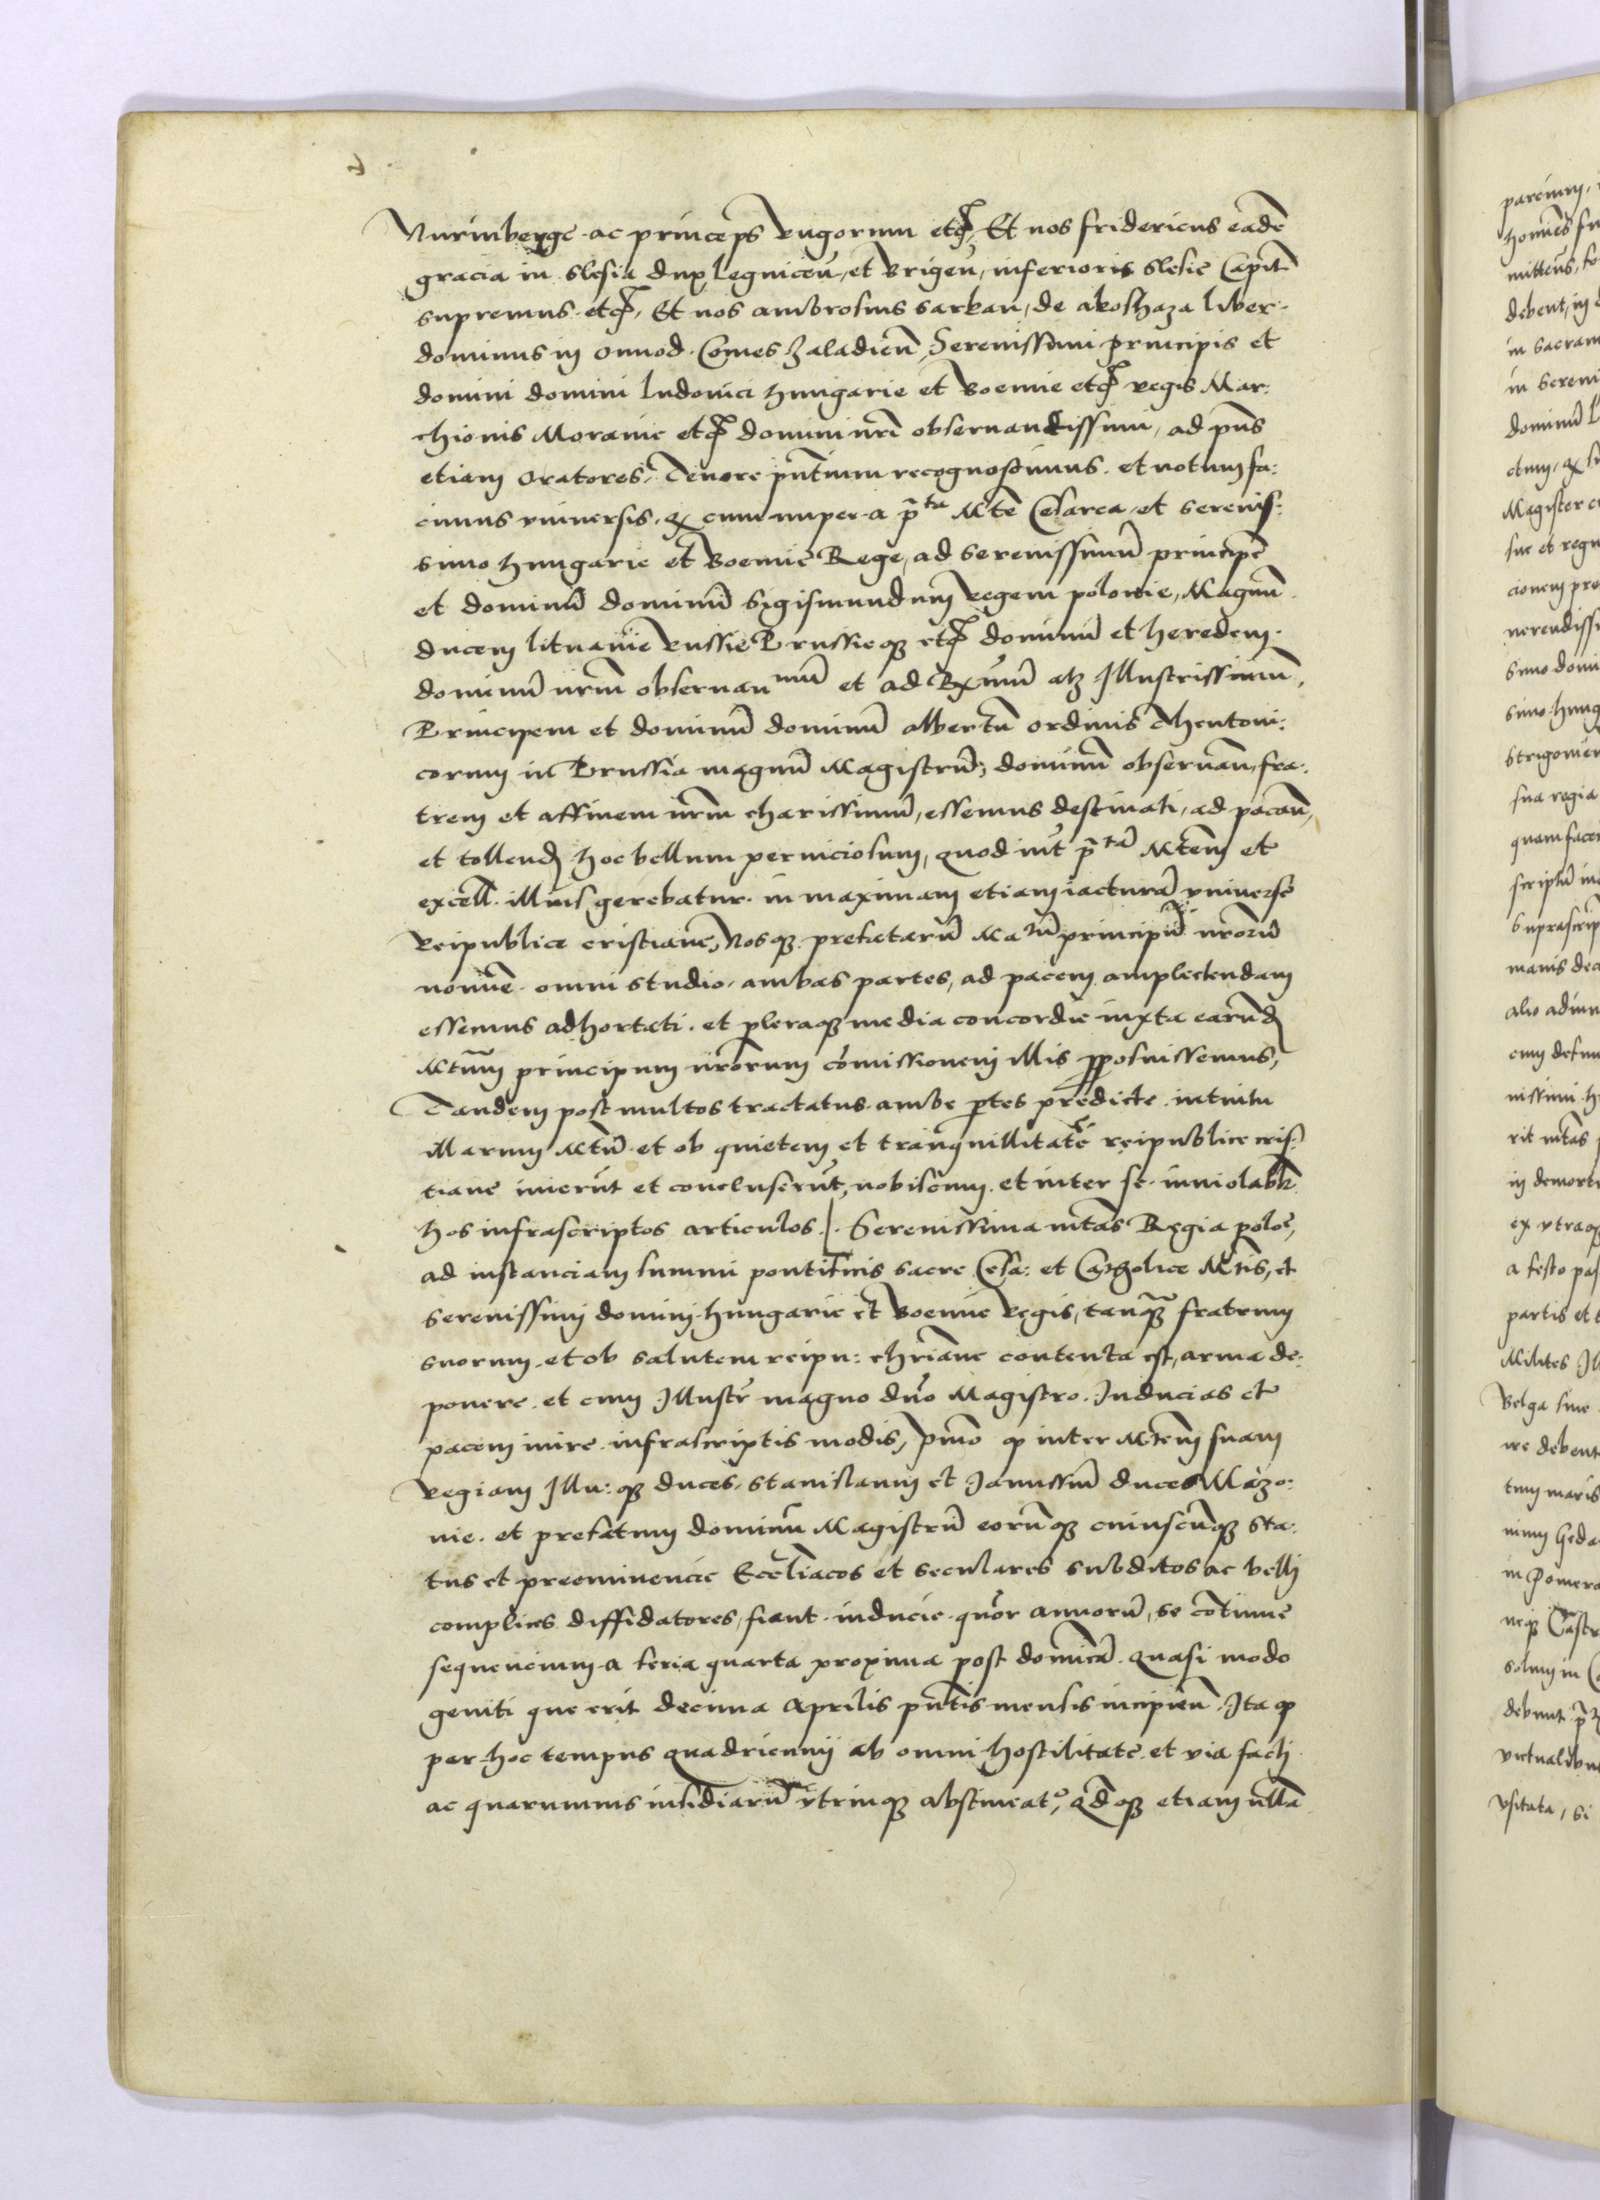 Nurinberge ac princeps rugorum etc̃ Et nos fridericus eadẽ
gracia in Slesia dux Legniceñ et Brigeñ inferioris Slesie Capitñ
supremus etc̃ Et nos ambrosius Sarkan de akoshaza liber
dominus in onnod Comes Zaladieñ Serenissimi principis et
domini domini ludovici hungarie et Boemie etc̃ regis Mar:
chionis Moravie etc̃ domini nr̃i observandissimi, ad pñs
etiam oratores, Tenore pñtium recognoscimus et notum fa:
cimus universis, q cum nuper a p̃ta Mte Cesarea et serenis:
simo hungarie et Boemie Rege, ad serenissimũ principẽ
et dominũ dominũ Sigismundum regem polonie, Magnũ
ducem lituanie russie Prussieq etc̃ dominũ et heredem
dominũ nr̃m observan mũ et ad Rxmũ atq Illustrissimũ
Principem et dominũ dominũ albertũ ordinis Theutoni:
corum in Prussia magnũ Magistrũ, dominũ observañ, fra:
trem et affinem nr̃m charissimũ, essemus destinati, ad pacañ
et tollend hoc bellum perniciosum, quod int̃ p̃tã Mtem et
excell. illius gerebatur in maximam etiam iacturã universe
Reipublice cristiane, Nosq prefatarũ Matũ principũ nr̃orũ
nomine omni studio ambas partes, ad pacem amplectendam
essemus adhortati et pleraq media concordie iuxta earund
Mtum principum nr̃orum cõmissionem illis proposuissemus,
Tandem post multos tractatus ambe ptes predicte intuitu
illarum Mtũ et ob quietem et tranquillitatẽ reipublice cris:
tiane inierũt et concluserũt, nobiscum et inter se inviolabłr
hos infrascriptos articulos /. Serenissima mtas Regia poloẽ,
ad instanciam summi pontificis sacre Cesa: et Catholice Mtis, et
serenissimi domini hungarie et Boemie Regis, tanq̃ fratrum
suorum et ob salutem reipu: chr̃iane contenta est, arma de:
ponere et cum Illustr̃ magno dño Magistro Inducias et
pacem inire infrascriptis modis, Pmo q inter Mtem suam
Regiam Illu: q duces Stanislaum et Janussiũ duces Mazo:
vie et prefatum dominũ Magistrũ eorũq cuiuscũq sta:
tus et preeminencie Ecc̃liacos et seculares subditos ac belli
complices diffidatores, fiant inducie quor̃ annorũ, se cõtinue
sequencium a feria quarta proxima post domicã quasi modo
geniti que erit decima Aprilis pñtis mensis incipieñ Ita q
per hoc tempus quadriennij ab omni hostilitate et via facti
ac quarumvis insidiarũ utrinq abstineatʳ, qdq etiam nlla